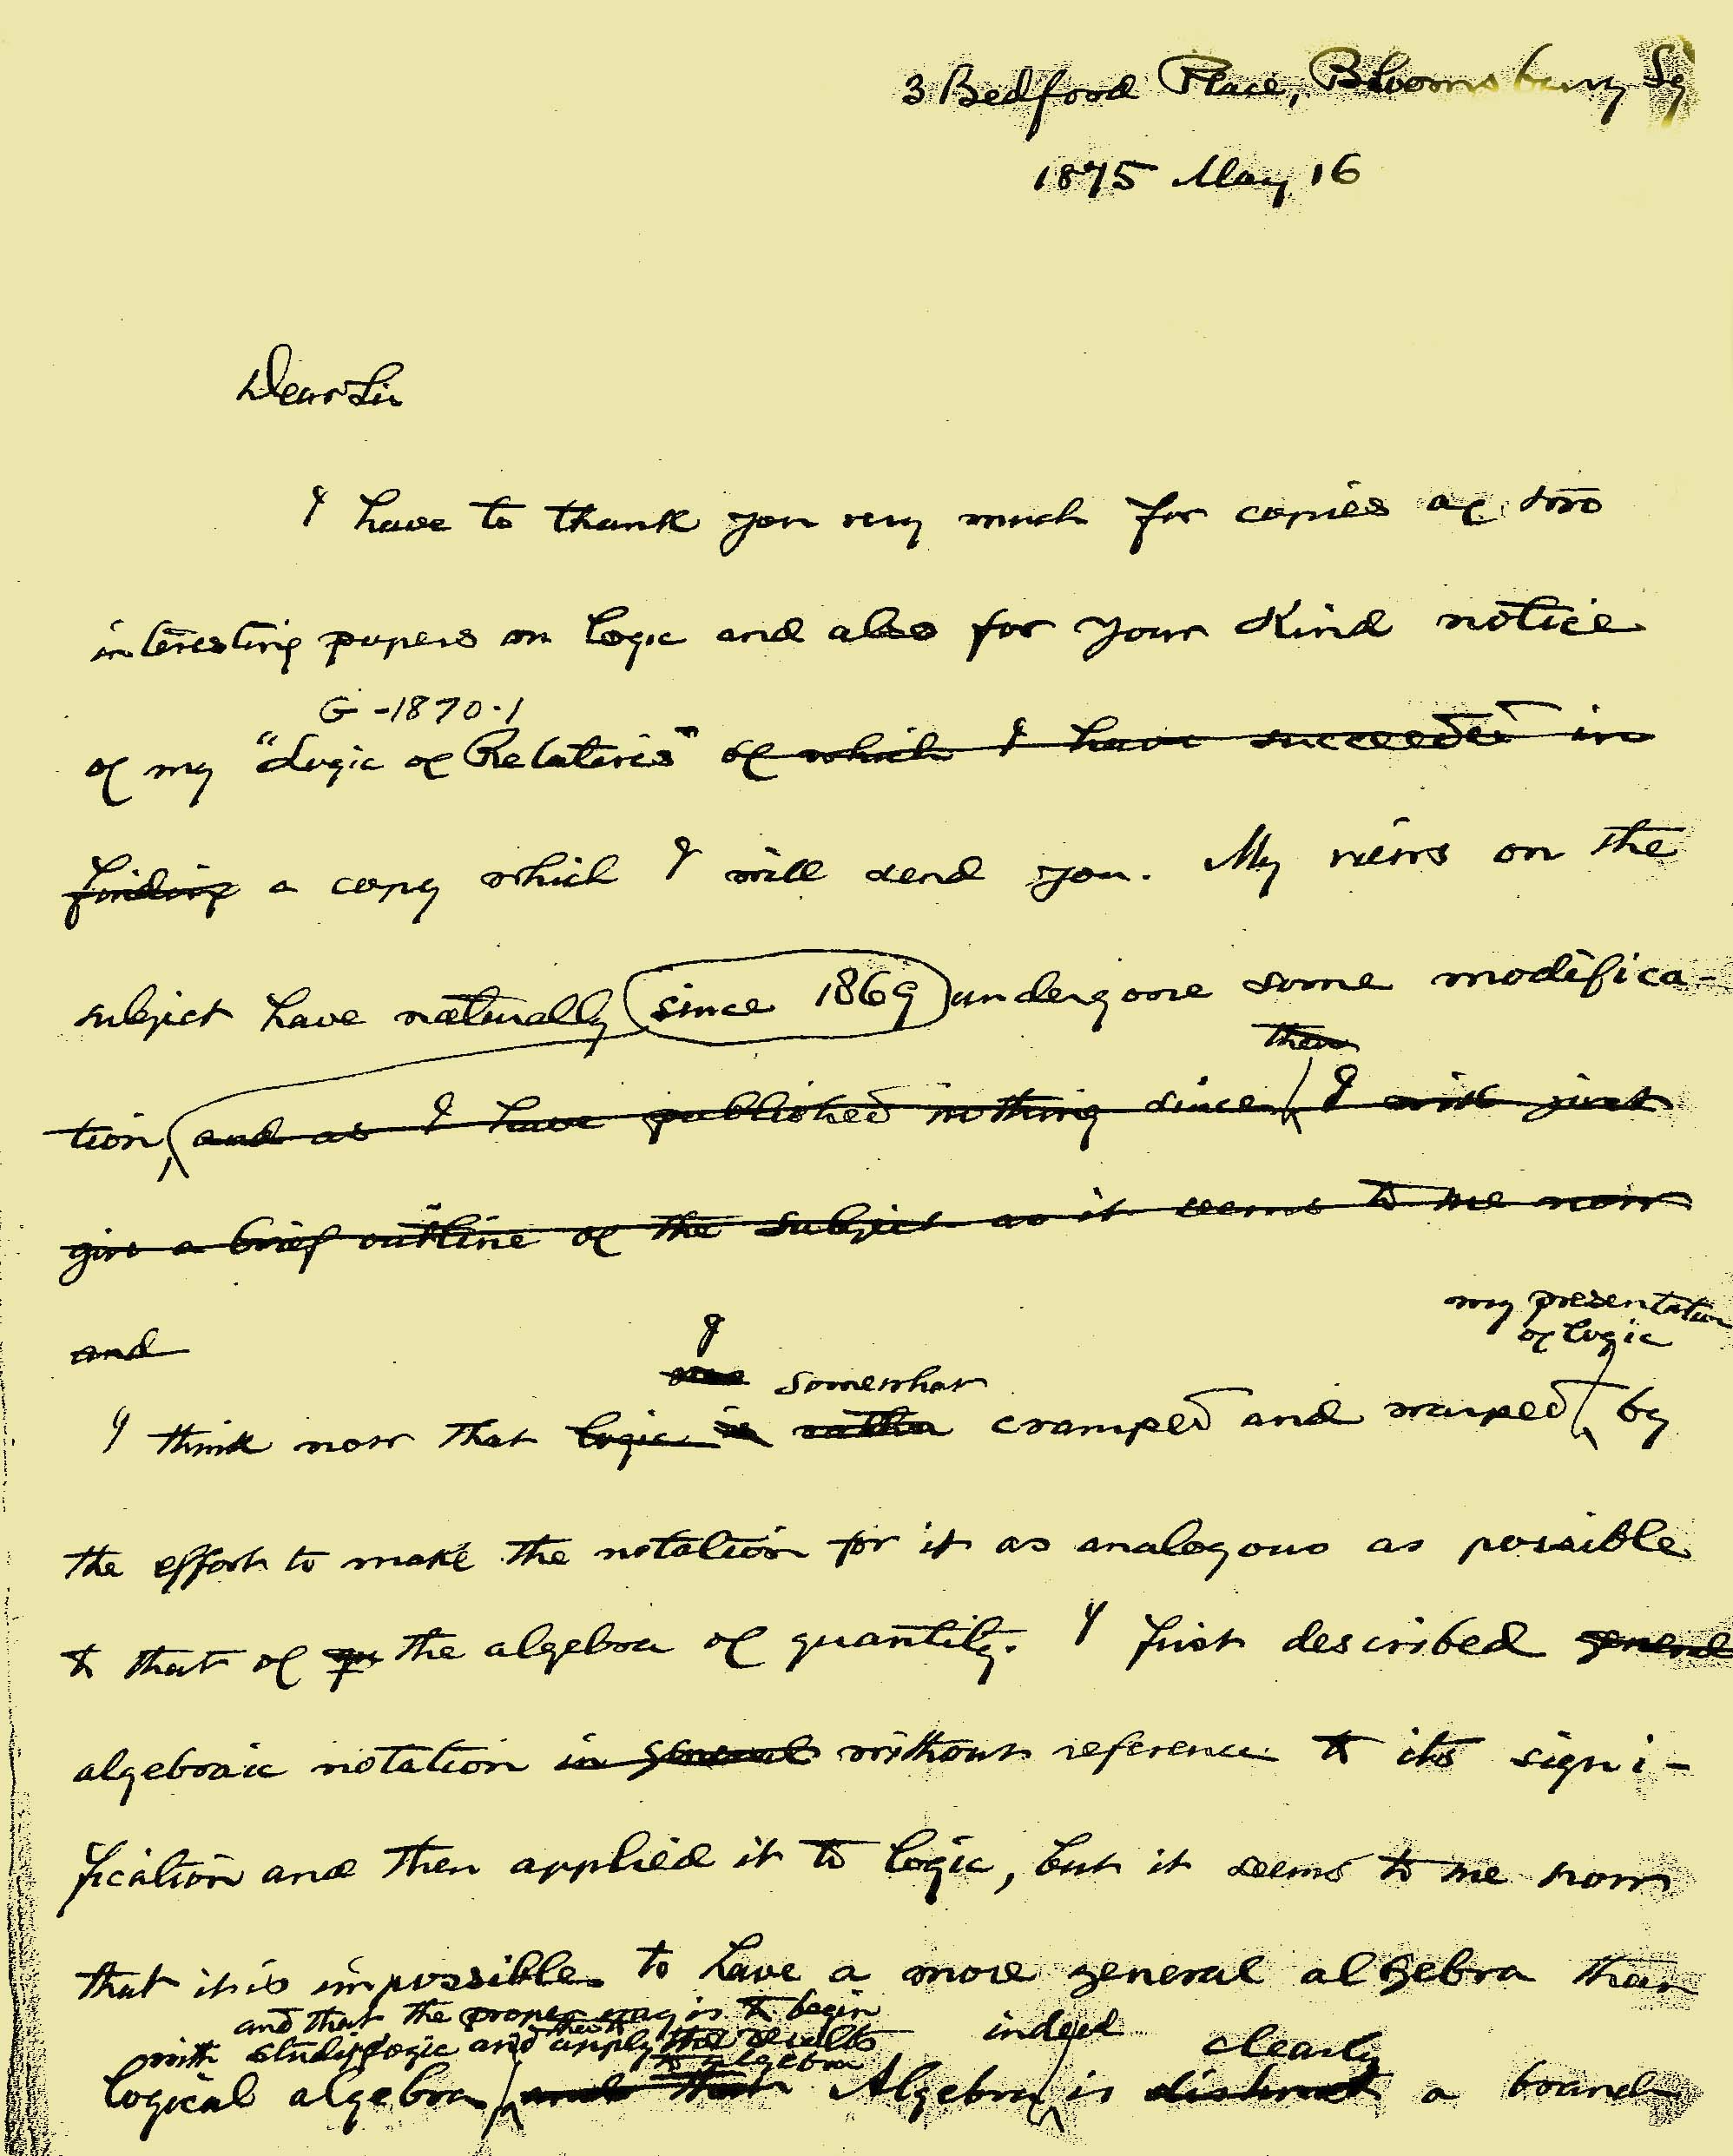 3 Bedford Place, Bloomsbury Sq
1875 May 16
Dear Sir
I have to thank you very much for copies of two
interesting papers on logic and also for your kind notice
G-1870-1
of my "Logic of Relatives" of which I have succeeded in
finding a copy which I will send you. My views on the
subject have naturally since 1869 undergone some modifica-
then
tion, and as I have published nothing since I will just
give a brief outline of the subject as it seems to me now
my presentation
of logic
and
I
somewhat
I think now that logic is rather cramped and warped by
the effort to make the notation for it as analogous as possible
to that of qu the algebra of quantity. I first described general
algebraic notation in general without reference to its signi-
fication and then applied it to logic, but it seems to me now
that it is impossible to have a more general algebra than
and that the proper way is to begin
indeed
with studying logic and then to apply the results
clearly
to algebra
logical algebra and that Algebra is distinct a branch